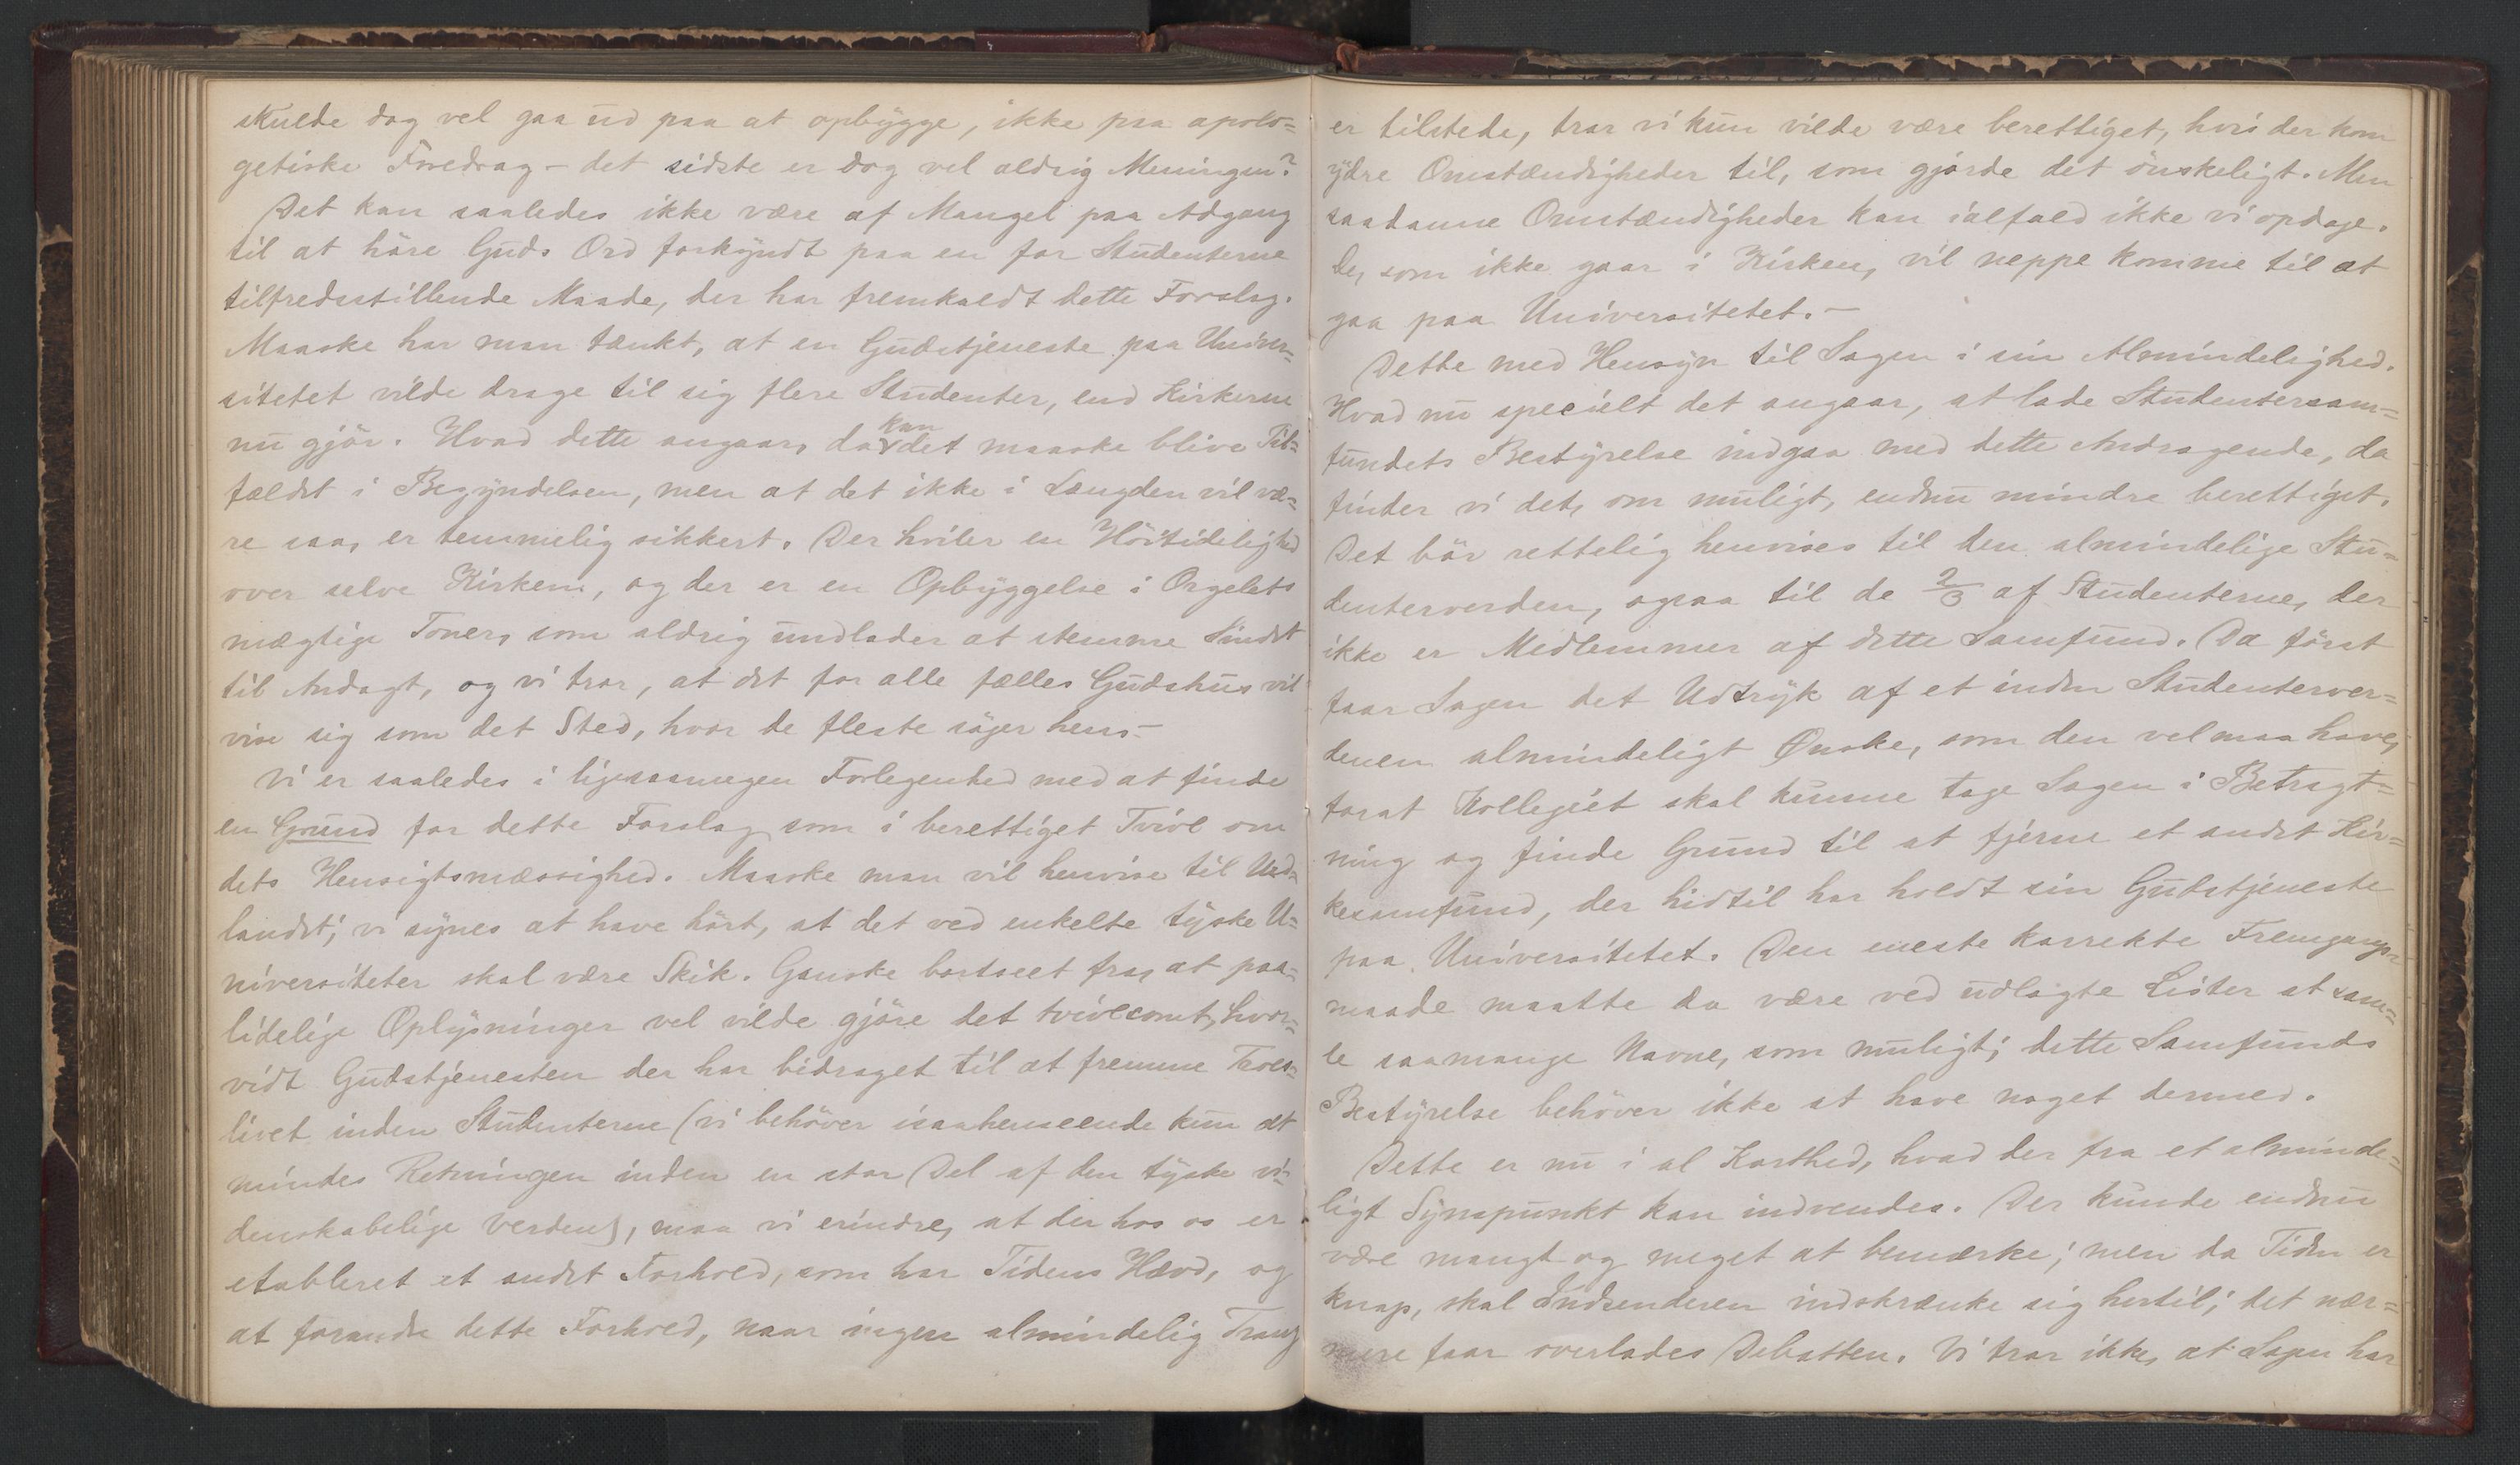 skulde dog vel gaa ud paa at opbygge, ikke paa apolo-
getiske Foredrag - det sidste er dog vel aldrig Meningen?
Det kan saaledes ikke være af Mangel paa Adgang
til at høre Guds Ord forkyndt paa en for Studenterne
tilfredsstillende Maade, der har fremkaldt dette Forslag.
Maaske har man tænkt, at en Gudstjeneste paa Univer-
sitetet vilde drage til sig flere Studenter, end Kirkerne
nu gjör. Hvad dette angaar, da kan det maaske blive Til-
fældet i Begyndelsen, men at det ikke i Længden vil væ-
re saa, er temmelig sikkert. Der hviler en Höitidelighed
over selve Kirken, og der er en Opbyggelse i Orgelets
mægtige Toner, som aldrig undlader at stemme Sindet
til Andagt, og vi tror, at det for alle fælles Gudshus vil
vise sig som det Sted, hvor de fleste söger hen. -
Vi er saaledes i ligesaamegen Forlegenhed med at finde
en Grund for dette Forslag som i berettiget Tvivl om
dets Hensigtsmæssighed. Maaske man vil henvise til Ud-
landet; vi synes at have hört, at det ved enkelte tyske U-
niversiteter skal være Skik. Ganske bortseet fra, at paa-
lidelige Oplysninger vel vilde gjöre det tvivlsomt, hvor-
vidt Gudstjenesten der har bidraget til at fremme Troes-
livet inden Studenterne (vi behöver isaahenseende kun at
mindes Retningen inden en stor Del af den tyske vi-
denskabelige Verden), maa vi erindre, at der hos os er
etableret et andet Forhold, som har Tidens Hævd, og
at forandre dette Forhold, naar ingen almindelig Trang
er tilstede, tror vi kun vilde være berettiget, hvis der kom
ydre Omstændigheder til, som gjorde det önskeligt. Men
saadanne Omstændigheder kan ialfald ikke vi opdage.
De, som ikke gaar i Kirken, vil neppe komme til at
gaa paa Universitetet. -
Dette med Hensyn til Sagen i sin Almindelighed.
Hvad nu specielt det angaar, at lade Studentersam-
fundets Bestyrelse indgaa med dette Andragende, da
finder vi det, om muligt, endnu mindre berettiget.
Det bör rettelig henvises til den almindelige Stu-
denterverden, ogsaa til de 2/3 af Studenterne, der
ikke er Medlemmer af dette Samfund. Da först
faar Sagen det Udtryk af et inden Studenterver-
denen almindeligt Ønske, som den vel maa have,
forat Kollegiet skal kunne tage Sagen i Betragt-
ning og finde Grund til at fjerne et andet Kir-
kesamfund, der hidtil har holdt sin Gudstjeneste
paa Universitetet. Den eneste korrekte Fremgangs-
maade maatte da være ved udlagte Lister at sam-
le saamange Navne, som muligt; dette Samfunds
Bestyrelse behöver ikke at have noget dermed.
Dette er nu i al Korthed, hvad der fra et alminde-
ligt Synspunkt kan indvendes. Der kunde endnu
være mangt og meget at bemærke; men da Tiden er
knap, skal Indsenderen indskrænke sig hertil; det nær-
mere faar overlades Debatten. Vi tror ikke, at Sagen har